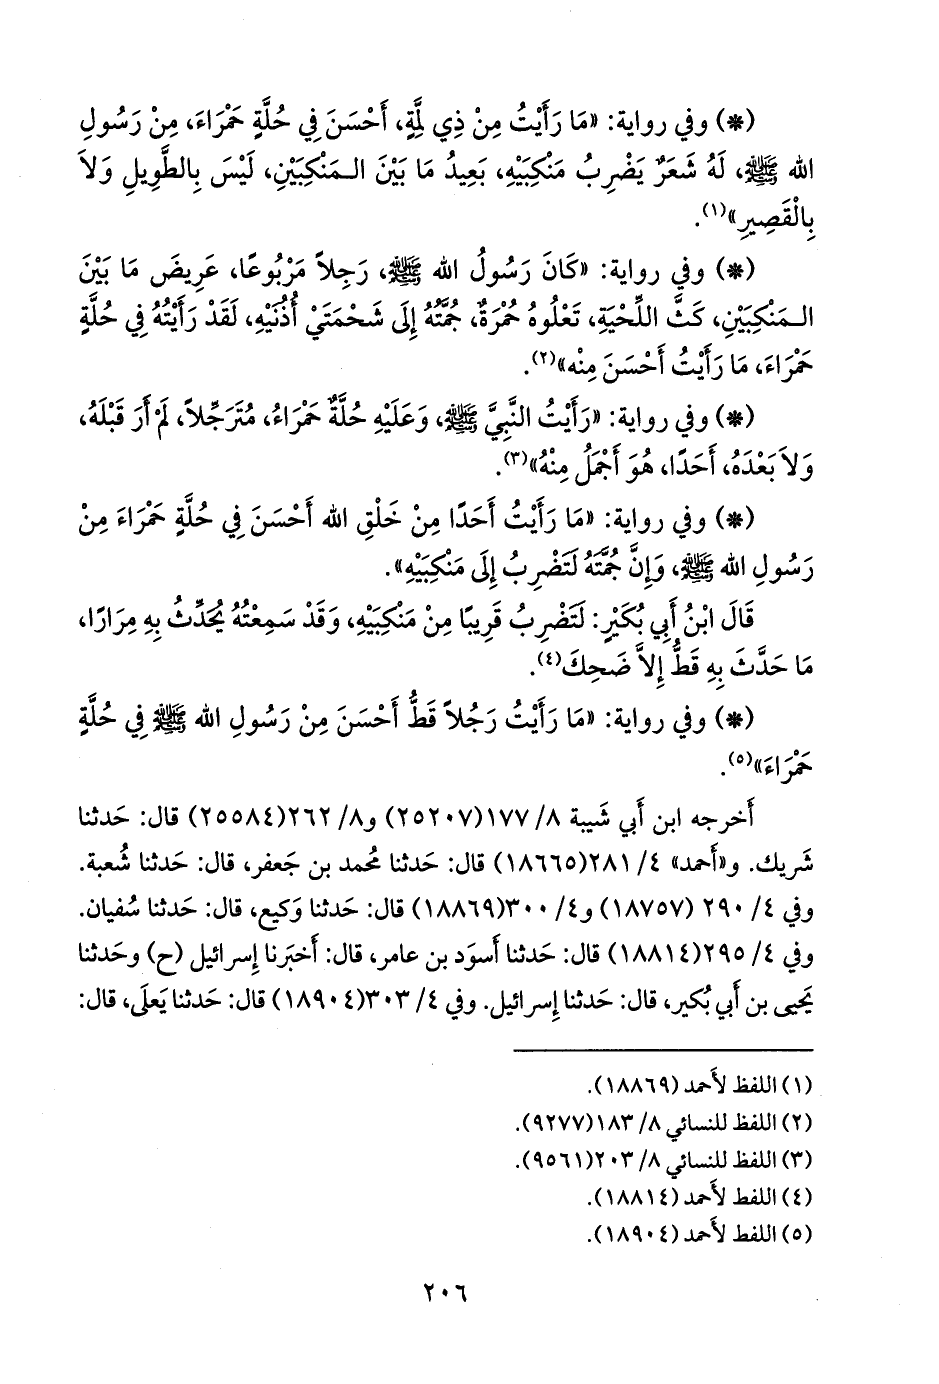 (*) وفي رواية: «مَا رَأَيْتُ مِنْ ذِي لِمَّةٍ، أَحْسَنَ فِي حُلَّةٍ حَمْرَاءَ، مِنْ رَسُولِ
الله ﷺ، لَهُ شَعَرٌ يَضْرِبُ مَنْكِبَيْهِ، بَعِيدُ مَا بَيْنَ الـمَنْكِبَيْنِ، لَيْسَ بِالطَّوِيلِ وَلاَ
بِالْقَصِيرِ»(١).
(*) وفي رواية: «كَانَ رَسُولُ الله ﷺ، رَجِلاً مَرْبُوعًا، عَرِيضَ مَا بَيْنَ
الـمَنْكِبَيْنِ، كَثَّ اللِّحْيَةِ، تَعْلُوهُ حُمْرَةٌ، جُمَّتُهُ إِلَى شَحْمَتَيْ أُذُنَيْهِ، لَقَدْ رَأَيْتُهُ فِي حُلَّةٍ
حَمْرَاءَ، مَا رَأَيْتُ أَحْسَنَ مِنْه»(٢).
(*) وفي رواية: «رَأَيْتُ النَّبِيَّ ﷺ، وَعَلَيْهِ حُلَّةٌ حَمْرَاءُ، مُتَرَجِّلاً، لَمْ أَرَ قَبْلَهُ،
وَلاَ بَعْدَهُ، أَحَدًا، هُوَ أَجْمَلُ مِنْهُ»(٣).
(*) وفي رواية: «مَا رَأَيْتُ أَحَدًا مِنْ خَلْقِ الله أَحْسَنَ فِي حُلَّةٍ حَمْرَاءَ مِنْ
رَسُولِ الله ﷺ، وَإِنَّ جُمَّتَهُ لَتَضْرِبُ إِلَى مَنْكِبَيْهِ».
قَالَ ابْنُ أَبِي بُكَيْرٍ: لَتَضْرِبُ قَرِيبًا مِنْ مَنْكِبَيْهِ، وَقَدْ سَمِعْتُهُ يُحَدِّثُ بِهِ مِرَارًا،
مَا حَدَّثَ بِهِ قَطُّ إِلاَّ ضَحِكَ(٤).
(*) وفي رواية: «مَا رَأَيْتُ رَجُلاً قَطُّ أَحْسَنَ مِنْ رَسُولِ الله ﷺ فِي حُلَّةٍ
حَمْرَاءَ»(٥).
أَخرجه ابن أَبي شَيبة ٨/ ١٧٧(٢٥٢٠٧) و٨/ ٢٦٢(٢٥٥٨٤) قال: حَدثنا
شَريك. و«أَحمد» ٤/ ٢٨١(١٨٦٦٥) قال: حَدثنا مُحمد بن جَعفر، قال: حَدثنا شُعبة.
وفي ٤/ ٢٩٠ (١٨٧٥٧) و٤/ ٣٠٠(١٨٨٦٩) قال: حَدثنا وَكيع، قال: حَدثنا سُفيان.
وفي ٤/ ٢٩٥(١٨٨١٤) قال: حَدثنا أَسوَد بن عامر، قال: أَخبَرنا إِسرائيل (ح) وحَدثنا
يَحيى بن أَبي بُكير، قال: حَدثنا إِسرائيل. وفي ٤/ ٣٠٣(١٨٩٠٤) قال: حَدثنا يَعلَى، قال:
(١) اللفظ لأَحمد (١٨٨٦٩).
(٢) اللفظ للنسائي ٨/ ١٨٣(٩٢٧٧).
(٣) اللفظ للنسائي ٨/ ٢٠٣(٩٥٦١).
(٤) اللفط لأَحمد (١٨٨١٤).
(٥) اللفط لأَحمد (١٨٩٠٤).
٢٠٦